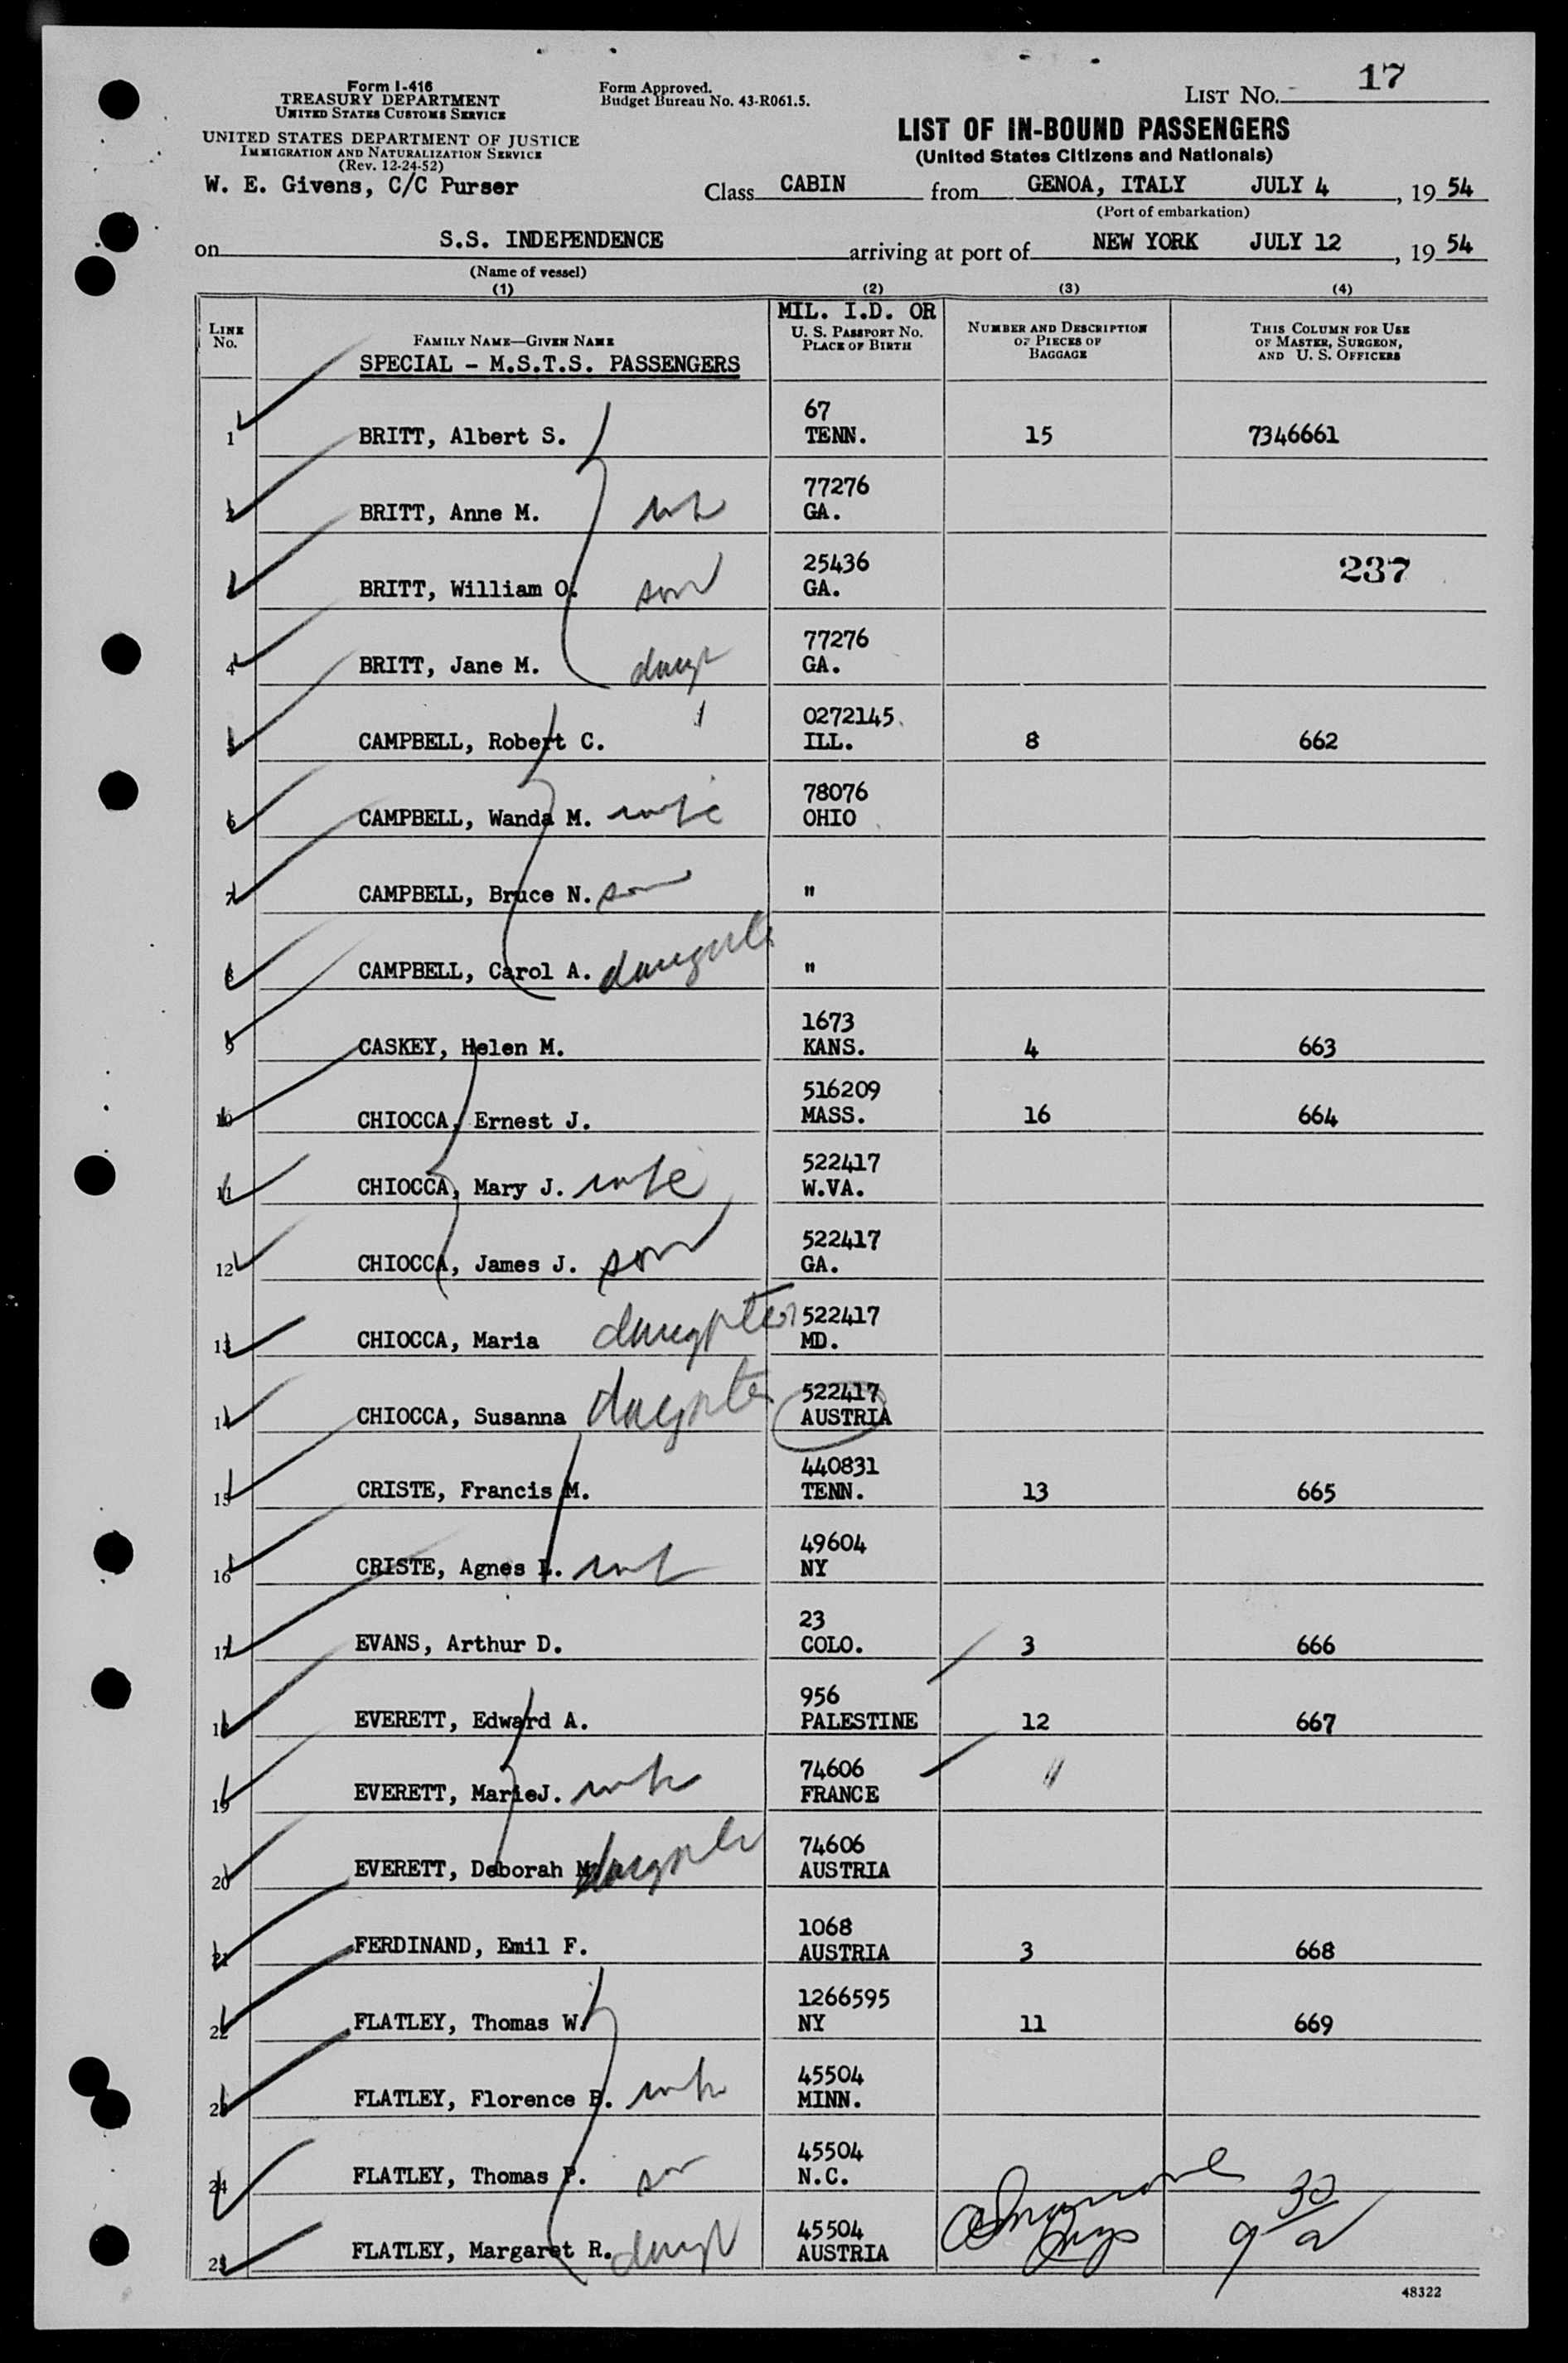 Form I-416
TREASURY DEPARTMENT
UNITED STATES CUSTOMS SERVICE
UNITED STATES DEPARTMENT OF JUSTICE
IMMIGRATION AND NATURALIZATION SERVICE
(Rev. 12-24-52)
W. E. Givens, C/C Purser
Form Approved.
Budget Bureau No. 43-R061.5.
LIST NO. 17
LIST OF IN-BOUND PASSENGERS
(United States Citizens and Nationals)
Class CABIN from GENOA, ITALY JULY 4, 19 54
(Port of embarkation)
on S.S. INDEPENDENCE arriving at port of NEW YORK JULY 12, 19 54
(Name of vessel)
(1) (2) (3) (4)
LINE NO.
FAMILY NAME—GIVEN NAME
SPECIAL - M.S.T.S. PASSENGERS
MIL. I.D. OR
U. S. PASSPORT NO.
PLACE OF BIRTH
NUMBER AND DESCRIPTION
OF PIECES OF
BAGGAGE
THIS COLUMN FOR USE
OF MASTER, SURGEON,
AND U. S. OFFICERS
67
1 BRITT, Albert S. TENN. 15 7346661
77276
2 BRITT, Anne M. GA.
25436 237
3 BRITT, William O. son GA.
77276
4 BRITT, Jane M. GA.
0272145
5 CAMPBELL, Robert C. ILL. 8 662
78076
6 CAMPBELL, Wanda M. wife OHIO
7 CAMPBELL, Bruce N. son "
8 CAMPBELL, Carol A. "
1673
9 CASKEY, Helen M. KANS. 4 663
516209
10 CHIOCCA, Ernest J. MASS. 16 664
522417
11 CHIOCCA, Mary J. wife W.VA.
522417
12 CHIOCCA, James J. son GA.
522417
13 CHIOCCA, Maria daughter MD.
522417
14 CHIOCCA, Susanna daughter AUSTRIA
440831
15 CRISTE, Francis M. TENN. 13 665
49604
16 CRISTE, Agnes L. NY
23
17 EVANS, Arthur D. COLO. 3 666
956
18 EVERETT, Edward A. PALESTINE 12 667
74606
19 EVERETT, MarieJ. FRANCE
74606
20 EVERETT, Deborah M. AUSTRIA
1068
21 FERDINAND, Emil F. AUSTRIA 3 668
1266595
22 FLATLEY, Thomas W. NY 11 669
45504
23 FLATLEY, Florence B. MINN.
45504
24 FLATLEY, Thomas P. son N.C.
45504
25 FLATLEY, Margaret R. AUSTRIA
48322